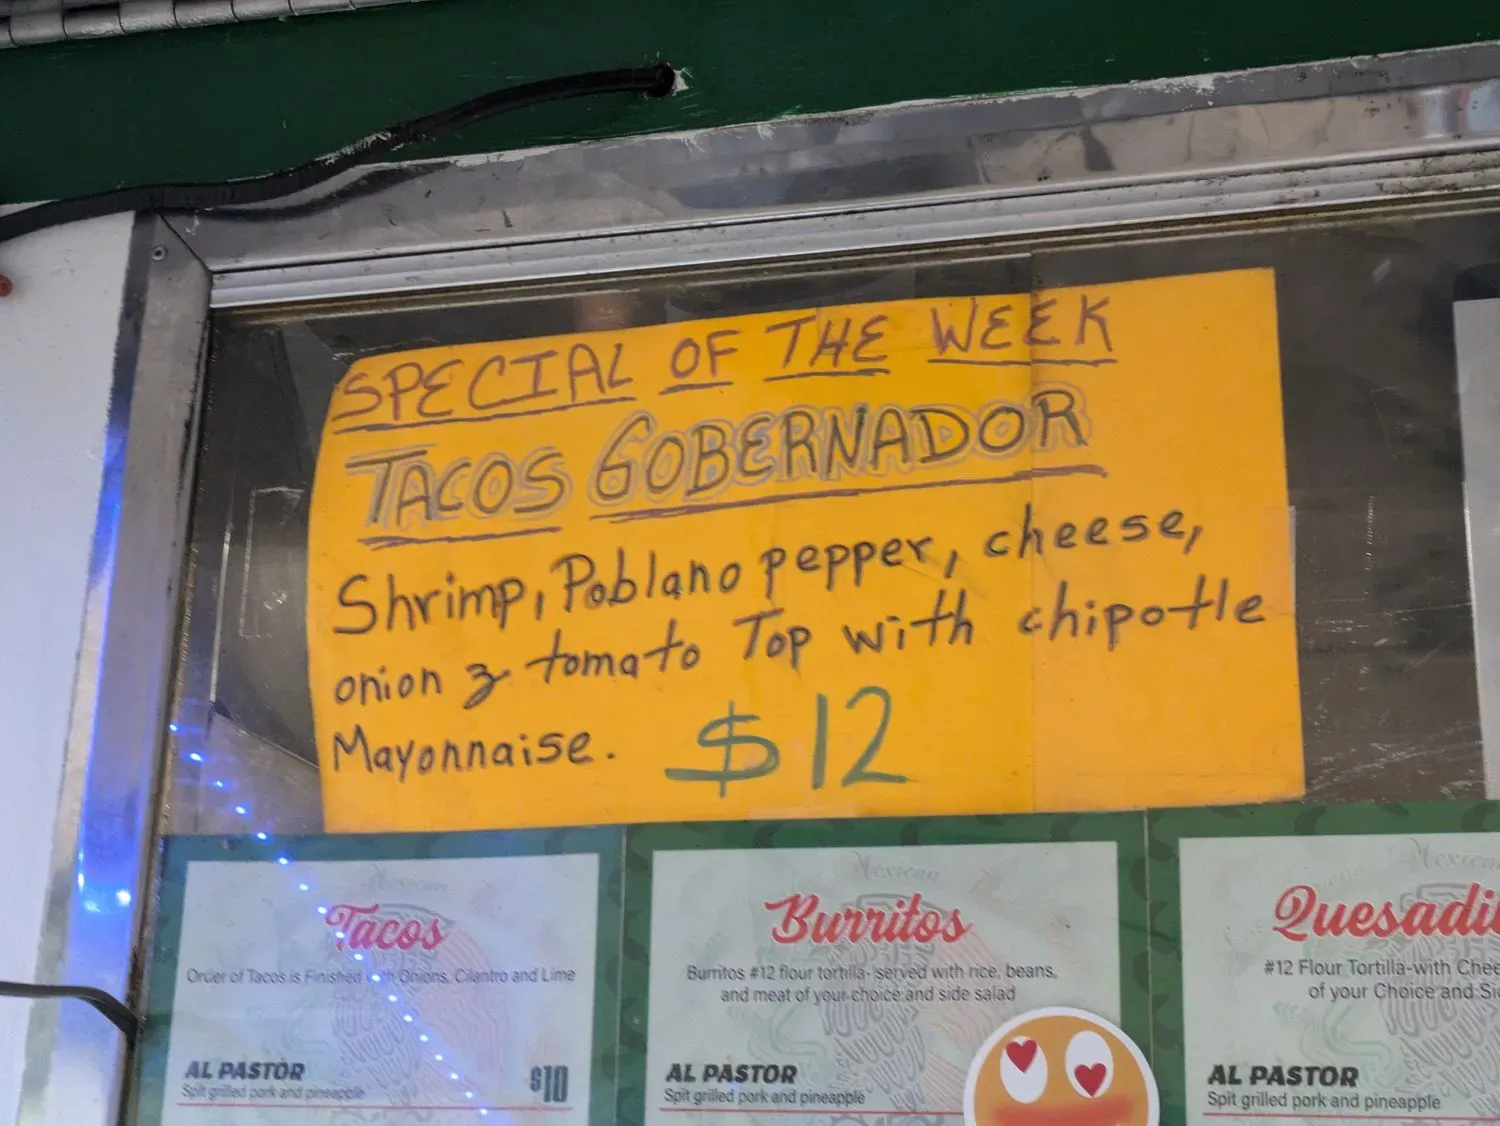 SPECIAL OF THE WEEK
TACOS GOBERNADOR
Shrimp, Poblano pepper, cheese,
onion & tomato Top with chipotle
Mayonnaise. $12
Mexican
Tacos
Order of Tacos is Finished with Onions, Cilantro and Lime
AL PASTOR $10
Spit grilled pork and pineapple
Mexican
Burritos
Burritos #12 flour tortilla- served with rice, beans,
and meat of your choice and side salad
AL PASTOR
Spit grilled pork and pineapple
Mexican
#12 Flour Tortilla-with
of your Choice and
AL PASTOR
Spit grilled pork and pineapple